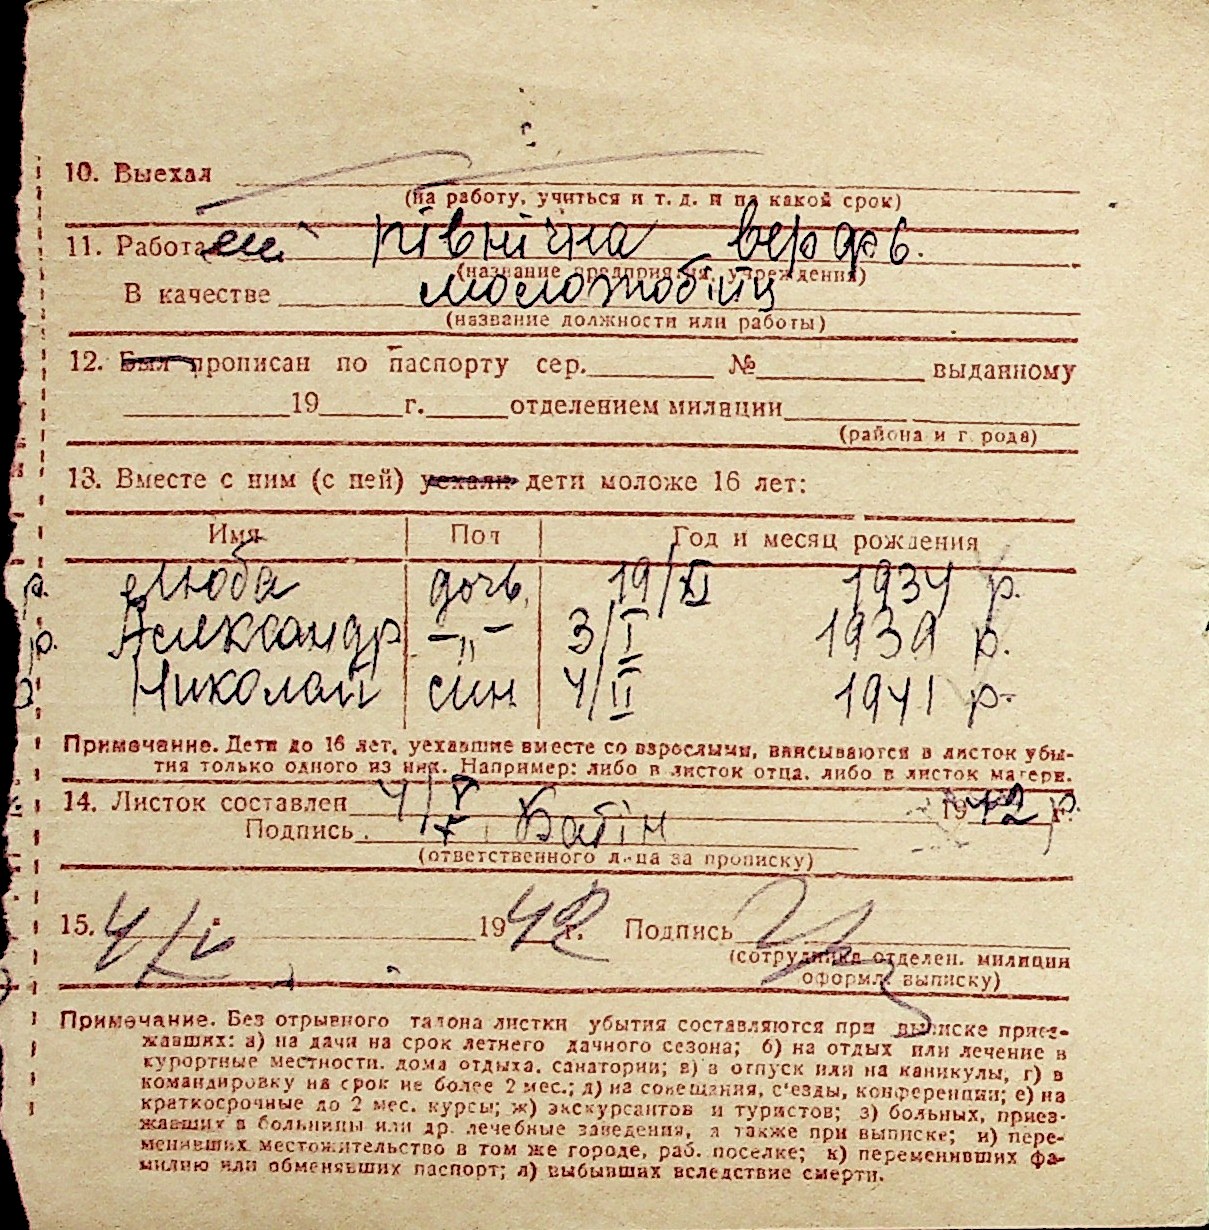 10. Выехал
(на работу, учиться и т. д. и на какой срок)
11. Работа північна верфь.
(название предприятия, учреждения)
В качестве молотобіїц
(название должности или работы)
12. Был прописан по паспорту сер. № выданному
19 г. отделением милиции
(района и города)
13. Вместе с ним (с ней) уехали дети моложе 16 лет:
Имя Пол Год и месяц рождения
р. Люба дочь 19/XI 1934 р.
р. Александр -"- 3/I 1939 р.
р. Николай син 4/II 1941 р.
Примечание. Дети до 16 лет, уехавшие вместе со взрослыми, вписываются в листок убы-
тия только одного из них. Например: либо в листок отца, либо в листок матери.
14. Листок составлен 4/V 1942 р.
Подпись Бабін
(ответственного лица за прописку)
15. 4/V 1942 г. Подпись
(сотрудника отделен. милиции
оформл. выписку)
Примечание. Без отрывного талона листки убытия составляются при выписке приез-
жавших: а) на дачи на срок летнего дачного сезона; б) на отдых или лечение в
курортные местности, дома отдыха, санатории; в) в отпуск или на каникулы, г) в
командировку на срок не более 2 мес.; д) на совещания, с'езды, конференции; е) на
краткосрочные до 2 мес. курсы; ж) экскурсантов и туристов; з) больных, приез-
жавших в больницы или др. лечебные заведения, а также при выписке; и) пере-
менивших местожительство в том же городе, раб. поселке; к) переменивших фа-
милию или обменявших паспорт; л) выбывших вследствие смерти.